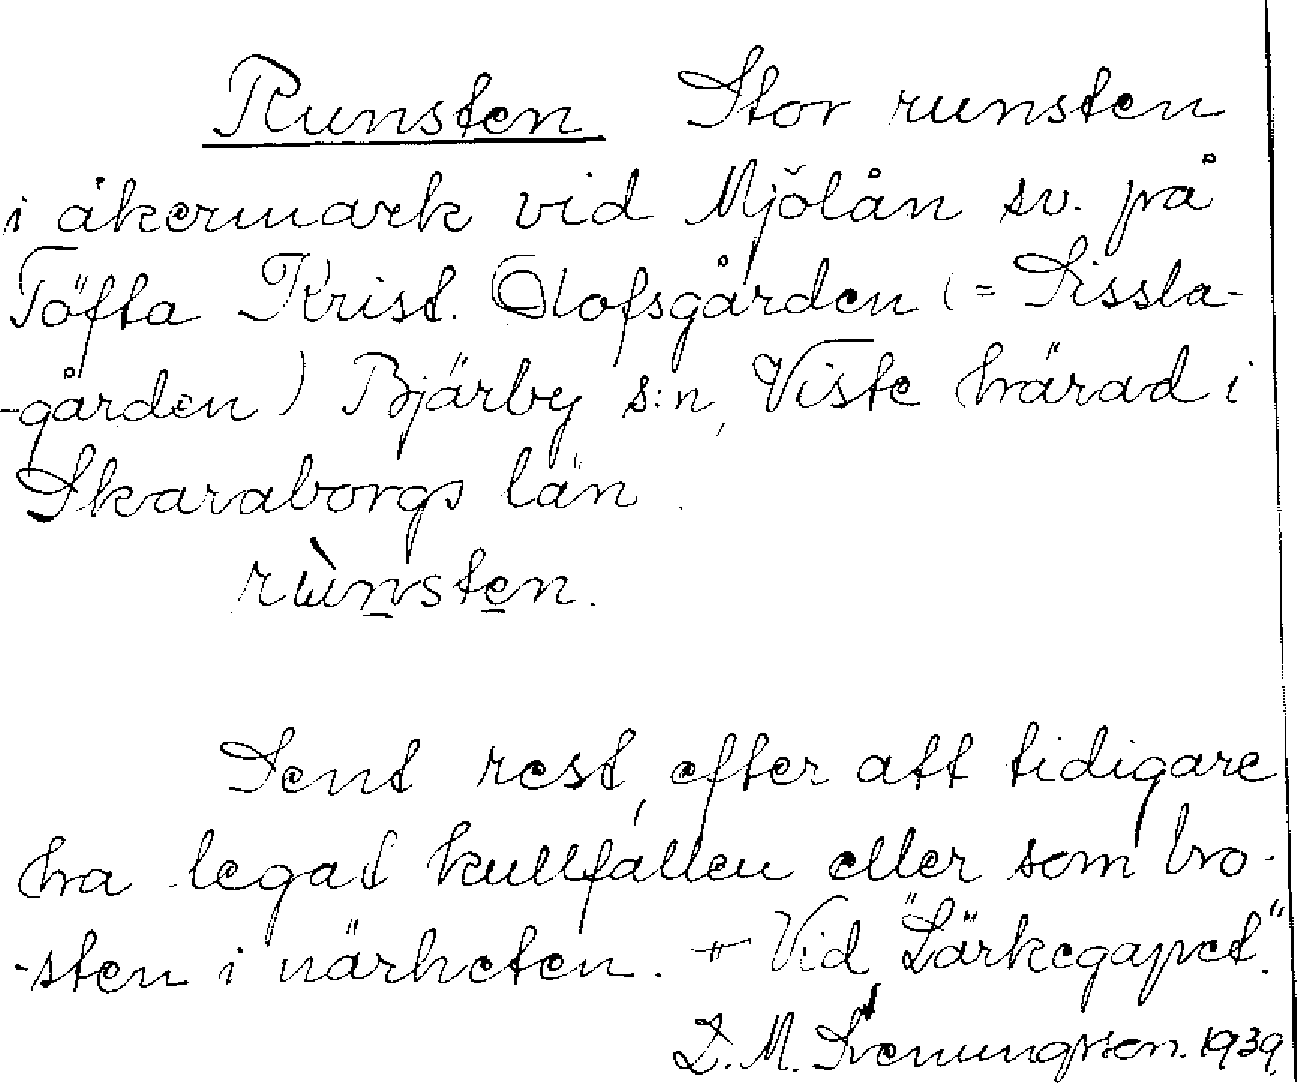 Runsten Stor runsten
i åkermark vid Mjölån sv. på
Töfta Krist. Olofsgården (= Sissla-
-gården) Bjärby s:n, Viste härad i
Skaraborgs län.
rùnsten.
Sent rest, efter att tidigare
ha legat kullfallen eller som bro-
-sten i närheten. + Vid "Lärkegapet."
D. M. Svenungsson. 1939.